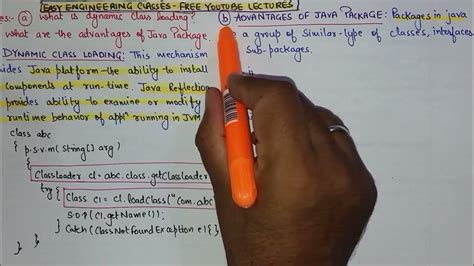 EASY ENGINEERING CLASSES - FREE YOUTUBE LECTURES
es:- (a) what is dynamic class loading?
what are the advantages of Java Package.
DYNAMIC CLASS LOADING: This mechanism
ides Java platform the ability to install
components at run-time. Java Reflection
provides ability to examine or modify
runtime behavior of appln running in JVM
class abc
{ p.s.v.m( String[] arg )
{
Classloader cl = abc.class.getClassloader
try {
Class c1 = cl.loadClass("com.abc
S.O.P (c1.getName());
}
Catch (ClassNotFoundException e) { }
(b) ADVANTAGES OF JAVA PACKAGE: Packages in java
e a group of similar-type of classes, interfaces
sub-packages.